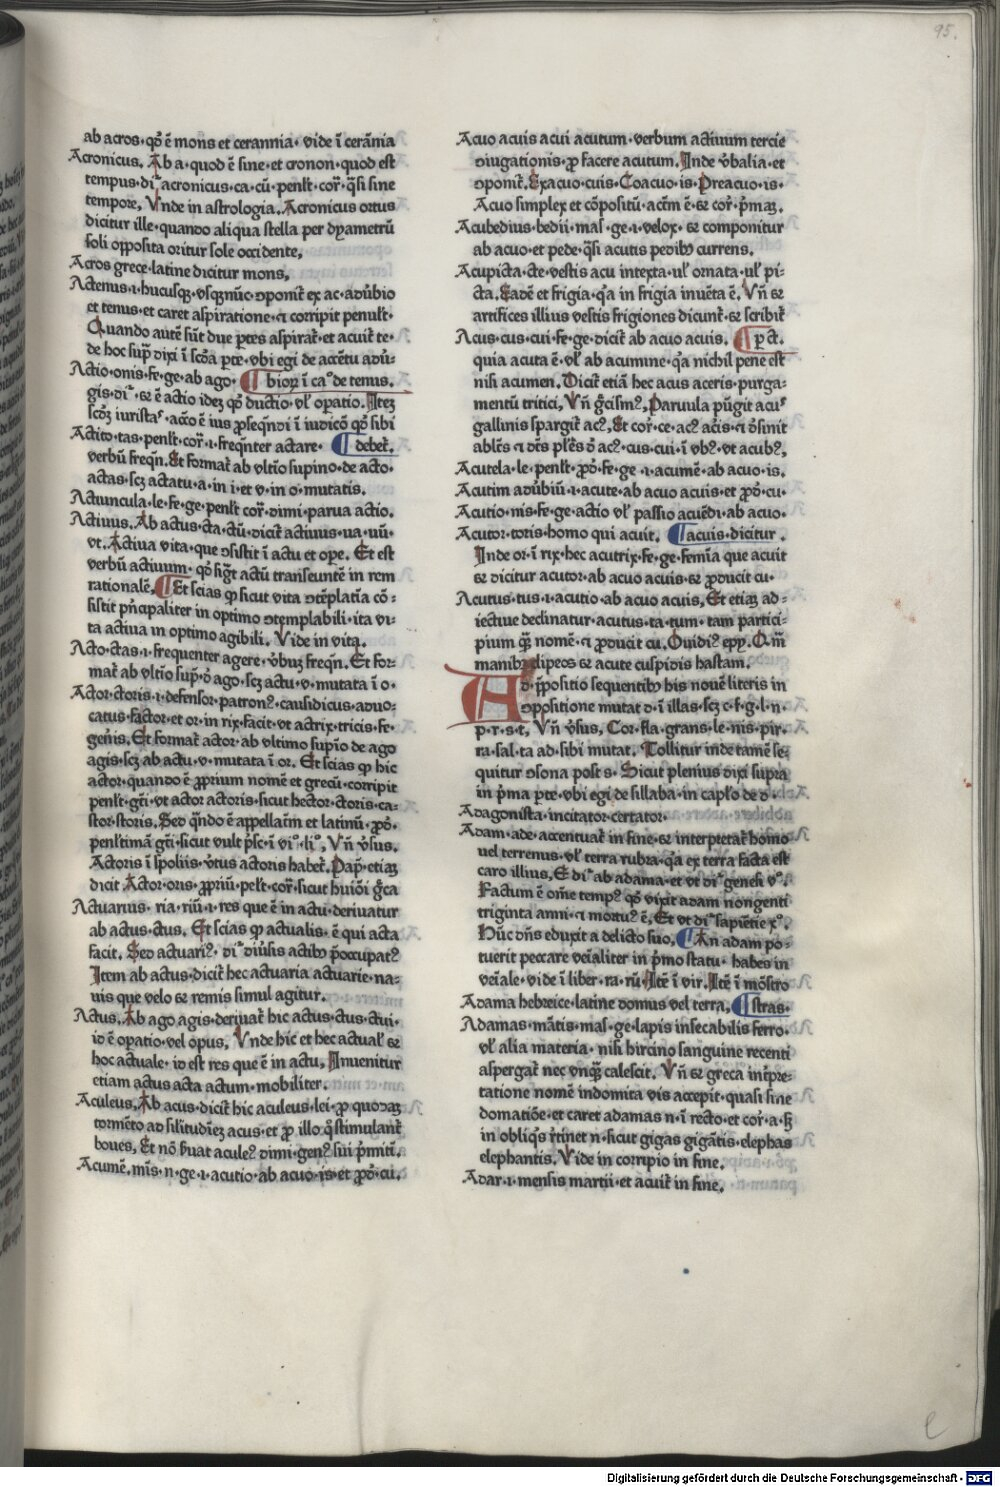 95.
ab acros· qđ ē mons et cerannia· vide ī cerānia
Acronicus. Ab a· quod ē sine· et cronon· quod est
tempus· dī acronicus· ca· cū· penlt· cor̄· q̄si sine
tempore, Vnde in astrologia. Acronicus ortus
dicitur ille· quando aliqua stella per dyametrū
soli opposita oritur sole occidente,
Acros grece· latine dicitur mons,
Actenus· i· hucusqꝫ· vsqꝫnūc· ꝯponit᷑ ex ac· adūbio
et tenus· et caret aspiratione· ⁊ corripit penult·
Quando autē sūt due ꝑtes aspirat᷑· et acuit᷑ te·
de hoc sup̄ dixi ī scd̄a ꝑte· vbi egi de accētu adū-
Actio· onis· fe· ge· ab ago· ¶ bioꝝ ī ca° de temus.
gis· dī· ⁊ ē actio idez qđ ductio· vl̄ oꝑatio. Itez
scd̄ꝫ iurista· acc̄o ē ius ꝓseq̄ndi ī iudicō qđ sibi
Actito· tas· penlt· cor̄· i· freq̄nter actare· ¶ debet᷑.
verbū freq̄n. Et format᷑ ab vltīo supino· de acto·
actas· scꝫ actatu· a· in i· et v· in o· mutatis.
Actuncula· le· fe· ge· penlt cor̄· dimi· parua actio.
Actiuus. Ab actus· cta· ctū· dicit᷑ actiuus· ua· uū·
vt· Actiua vita· que ꝯsistit ī actu et ope. Et est
verbū actiuum· qđ sigt̄ actū transeuntē in rem
rationalē, ¶ Et scias ꝙ sicut vita ꝯtēplatīa cō-
sistit pn̄cipaliter in optimo ꝯtemplabili· ita vi-
ta actiua in optimo agibili. Vide in vita.
Acto· ctas· i· frequenter agere· v̄buꝫ freq̄n. Et for-
mat᷑ ab vltīo sup̄· đ ago· scꝫ actu· v· mutata ī o·
Actor· ctoris· i· defensor· patronꝰ· causidicus· aduo-
catus· factor· et or· in rix· facit· vt actrix· tricis· fe·
gen̄is. Et format᷑ actor· ab vltimo supīo de ago
agis· scꝫ ab actu· v· mutata ī or. Et scias ꝙ hic
actor· quando ē ꝓprium nomē et grecū· corripit
penlt· gt̄i· vt actor actoris· sicut hector· ctoris· ca-
stor· storis. Sed q̄ndo ē appellatm̄ et latinū· ꝓđ·
penltimā gt̄i· sicut vult pʳsc· ī vi°· li°, Vn̄ v̄sus.
Actoris ī spoliis· v̄tus actoris habet᷑. Pap̄· etiaꝫ
dicit Actor· oris· ꝓpriū· pelt· cor̄· sicut huiōi gʳca
Actuarius· ria· riū· i· res que ē in actu· deriuatur
ab actus· ctus. Et scias ꝙ actualis· ē qui acta
facit. Sed actuariꝰ· dī diūsis actibꝫ p̄occupatꝰ
Item ab actus· dicit᷑ hec actuaria actuarie· na-
uis que velo ⁊ remis simul agitur.
Actus. Ab ago agis· deriuat᷑ hic actus· ctus· ctui·
id ē oꝑatio· vel opus, Vnde hic et hec actual᷑ ⁊
hoc actuale· id est res que ē in actu, Inuenitur
etiam actus acta actum· mobiliter.
Aculeus. Ab acus· dicit᷑ hic aculeus· lei· ꝓ quodaꝫ
tormēto ad sil̄itudīeꝫ acus· et ꝓ illo q̊ stimulant᷑
boues, Et nō ſuat aculeꝰ dimi· genꝰ sui pʳmiti.
Acumē· mīs· n· ge· i· acutio· ab acuo· is· et ꝓđ· cu.
Acuo acuis acui acutum· verbum actiuum tercie
ꝯiugationis· ꝓ facere acutum. Inde v̄balia· et
ꝯponit᷑. Exacuo· cuis· Coacuo· is· Preacuo· is·
Acuo simplex et cōpositū· actm̄ ē· ⁊ cor̄· pʳmaꝫ.
Acubedius· bedii· mas· ge· i· velox· ⁊ componitur
ab acuo· et pede· q̄si acutis pedibꝫ currens.
Acupicta· cte· vestis acu intexta· ul̄ ornata· ul̄ pi-
cta. Eadē et frigia· q̊a in frigia inuēta ē. Vn̄ ⁊
artifices illius vestis frigiones dicunt᷑· ⁊ scribit᷑
Acus· cus· cui· fe· ge· dicit᷑ ab acuo acuis. ¶ ꝑ ct·
quia acuta ē· vl̄ ab acumine· q̊a nichil pene est
nisi acumen. Dicit᷑ etiā hec acus aceris· purga-
mentū tritici, Vn̄ gʳcismꝰ, Paruula pūgit acuˢ
gallinis spargit᷑ acꝰ. Et cor̄· ce· acꝰ ac̄is· ⁊ đsinit
ablēs ⁊ dēs pl̄es đ acꝰ· cus· cui· ī vbꝰ· vt acubꝰ,
Acutela· le· penlt· ꝓđ· fe· ge· i· acumē· ab acuo· is.
Acutim adūbiū· i· acute· ab acuo acuis· et ꝓđ· cu·
Acutio· nis· fe· ge· actio vl̄ passio acuēdi· ab acuo·
Acutor· toris· homo qui acuit. ¶ acuis· dicitur.
Inde or· ī rix· hec acutrix· fe· ge· femīa que acuit
⁊ dicitur acutor· ab acuo acuis· ⁊ ꝓducit cu·
Acutus· tus· i· acutio· ab acuo acuis, Et etiaꝫ ad-
iectiue declinatur· acutus· ta· tum· tam partici-
pium qꝫ nomē· ⁊ ꝓducit cu. Ouidiꝰ epy. Qm̄
manibꝫ clipeos ⁊ acute cuspidis hastam.
Ad· p̄positio sequentibꝫ his nouē literis in
ꝯpositione mutat d· ī illas· scꝫ c· f· g· l· n·
p· r· s· t, Vn̄ v̄sus, Cor· fla· grans· le· nis· pir·
ra· sal· ta ad· sibi mutat. Tollitur inde tamē se-
quitur ꝯsona post s· Sicut plenius dixi supra
in pʳma ꝑte· vbi egi de sillaba· in caplo de d·
Adagonista· incitator· certator·
Adam· ade· accentuat᷑ in fine· ⁊ interpretat᷑ homo
uel terrenus· vl̄ terra rubra· q̊a ex terra facta est
caro illius, Et dī ab adama· et vt dī genesi v°.
Factum ē om̄e tempꝰ qđ vixit adam nongenti
triginta anni· ⁊ mortuꝰ ē, Et vt dī sapiētie x°.
Hūc dn̄s eduxit a delicto suo. ¶ An adam po-
tuerit peccare veīaliter in pʳmo statu· habes in
veīale· vide ī liber· ra· rū· Itē ī vir. Itē ī mōstro
Adama hebreice· latine domus vel terra, ¶ stras.
Adamas· mātis· mas· ge· lapis insecabilis ferro·
vl̄ alia materia· nisi hircino sanguine recenti
aspergat᷑ nec vnqꝫ calescit. Vn̄ ⁊ greca int̄pre-
tatione nomē indomita vis accepit· quasi sine
domatiōe· et caret adamas n· ī recto· et cor̄· a· ⁊
in obliqˢ r̄tinet n· sicut gigas gigātis· elephas
elephantis. Vide in corripio in fine.
Adar· i· mensis martii· et acuit᷑ in fine.
e
Digitalisierung gefördert durch die Deutsche Forschungsgemeinschaft - DFG